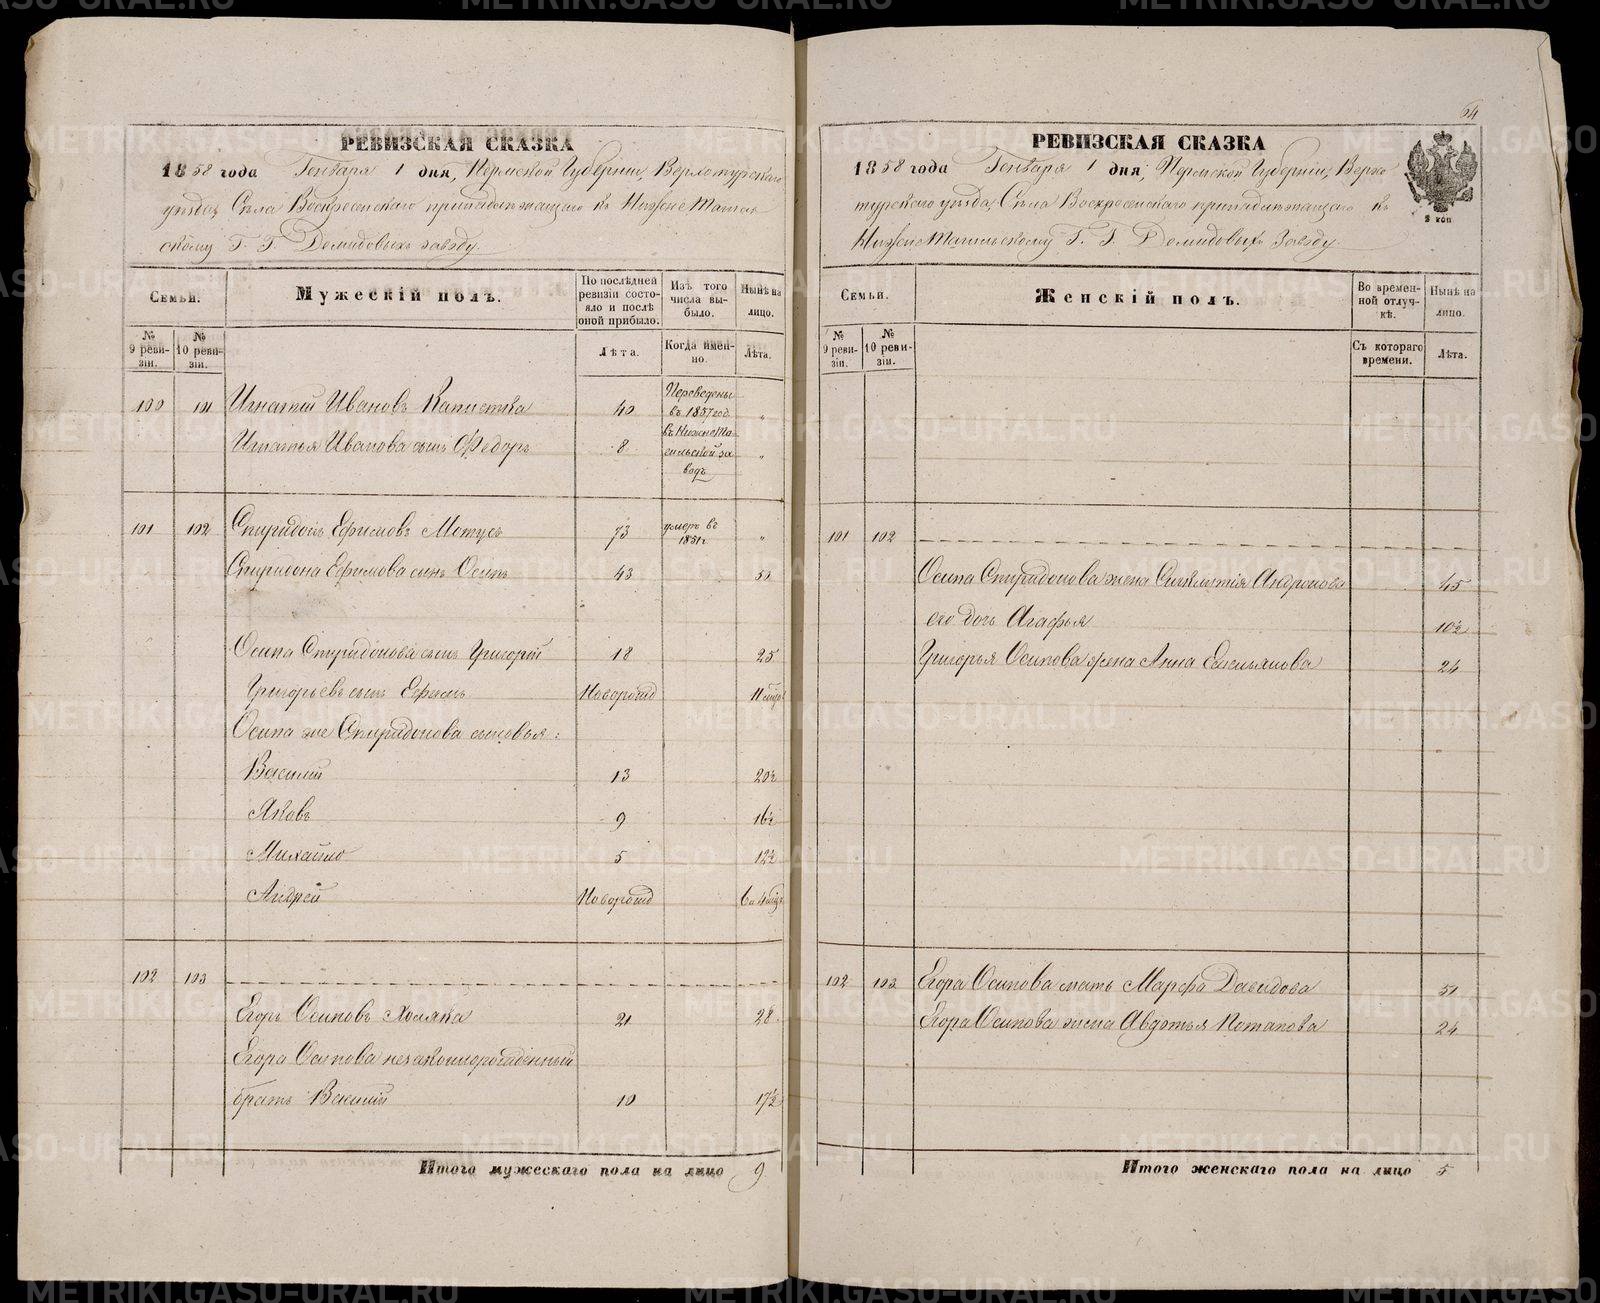 РЕВИЗСКАЯ СКАЗКА
1858 года Генваря 1 дня, Пермской Губернии, Верхотурскаго
уѣзда, Села Воскресенскаго принадлежащаго къ НижнеТагиль-
скому Г. Г. Демидовыхъ заводу.
Семьи.
Мужескій полъ.
По послѣдней ревизіи состояло и послѣ оной прибыло.
Изъ того числа выбыло.
Нынѣ на лицо.
№ 9 ревизіи.
№ 10 ревизіи.
Лѣта.
Когда именно.
Лѣта.
100 101 Игнатій Ивановъ 40 Переведены въ 1857 год. въ НижнеТагильской заводъ „
Игнатья Иванова сынъ Ѳедоръ 8 „
101 102 Спиридонъ Ефимовъ 73 умеръ въ 1851 г. „
Спиридона Ефимова сынъ Осипъ 43
Осипа Спиридонова сынъ Григорій 18 25
Григорьевъ сынъ Ефимъ Новорожд 11 мцов
Осипа же Спиридонова сыновья:
Василій 13 20½
Яковъ 9 16½
Михайло 5 12½
Андрей Новорожд 6 и 4 мѣс
102 103
Егоръ Осиповъ Холяка 21 28
Егора Осипова незаконнорожденный
братъ Василій 10 17½
Итого мужескаго пола на лицо 9
64
РЕВИЗСКАЯ СКАЗКА
1858 года Генваря 1 дня, Пермской Губерніи, Верхо
турскаго уѣзда, Села Воскресенскаго принадлежащаго къ
НижнеТагильскому Г. Г. Демидовыхъ Заводу.
2 коп
Семьи.
Женскій полъ.
Во временной отлучкѣ.
Нынѣ на лицо.
№ 9 ревизіи.
№ 10 ревизіи.
Съ котораго времени.
Лѣта.
101 102
Осипа Спиридонова жена Андронова 45
его дочь Агафья 10½
Григорья Осипова жена Анна Емельянова 24
102 103 Егора Осипова мать Марфа Давидова 51
Егора Осипова жена Авдотья Потапова 24
Итого женскаго пола на лицо 5
METRIKI.GASO-URAL.RU